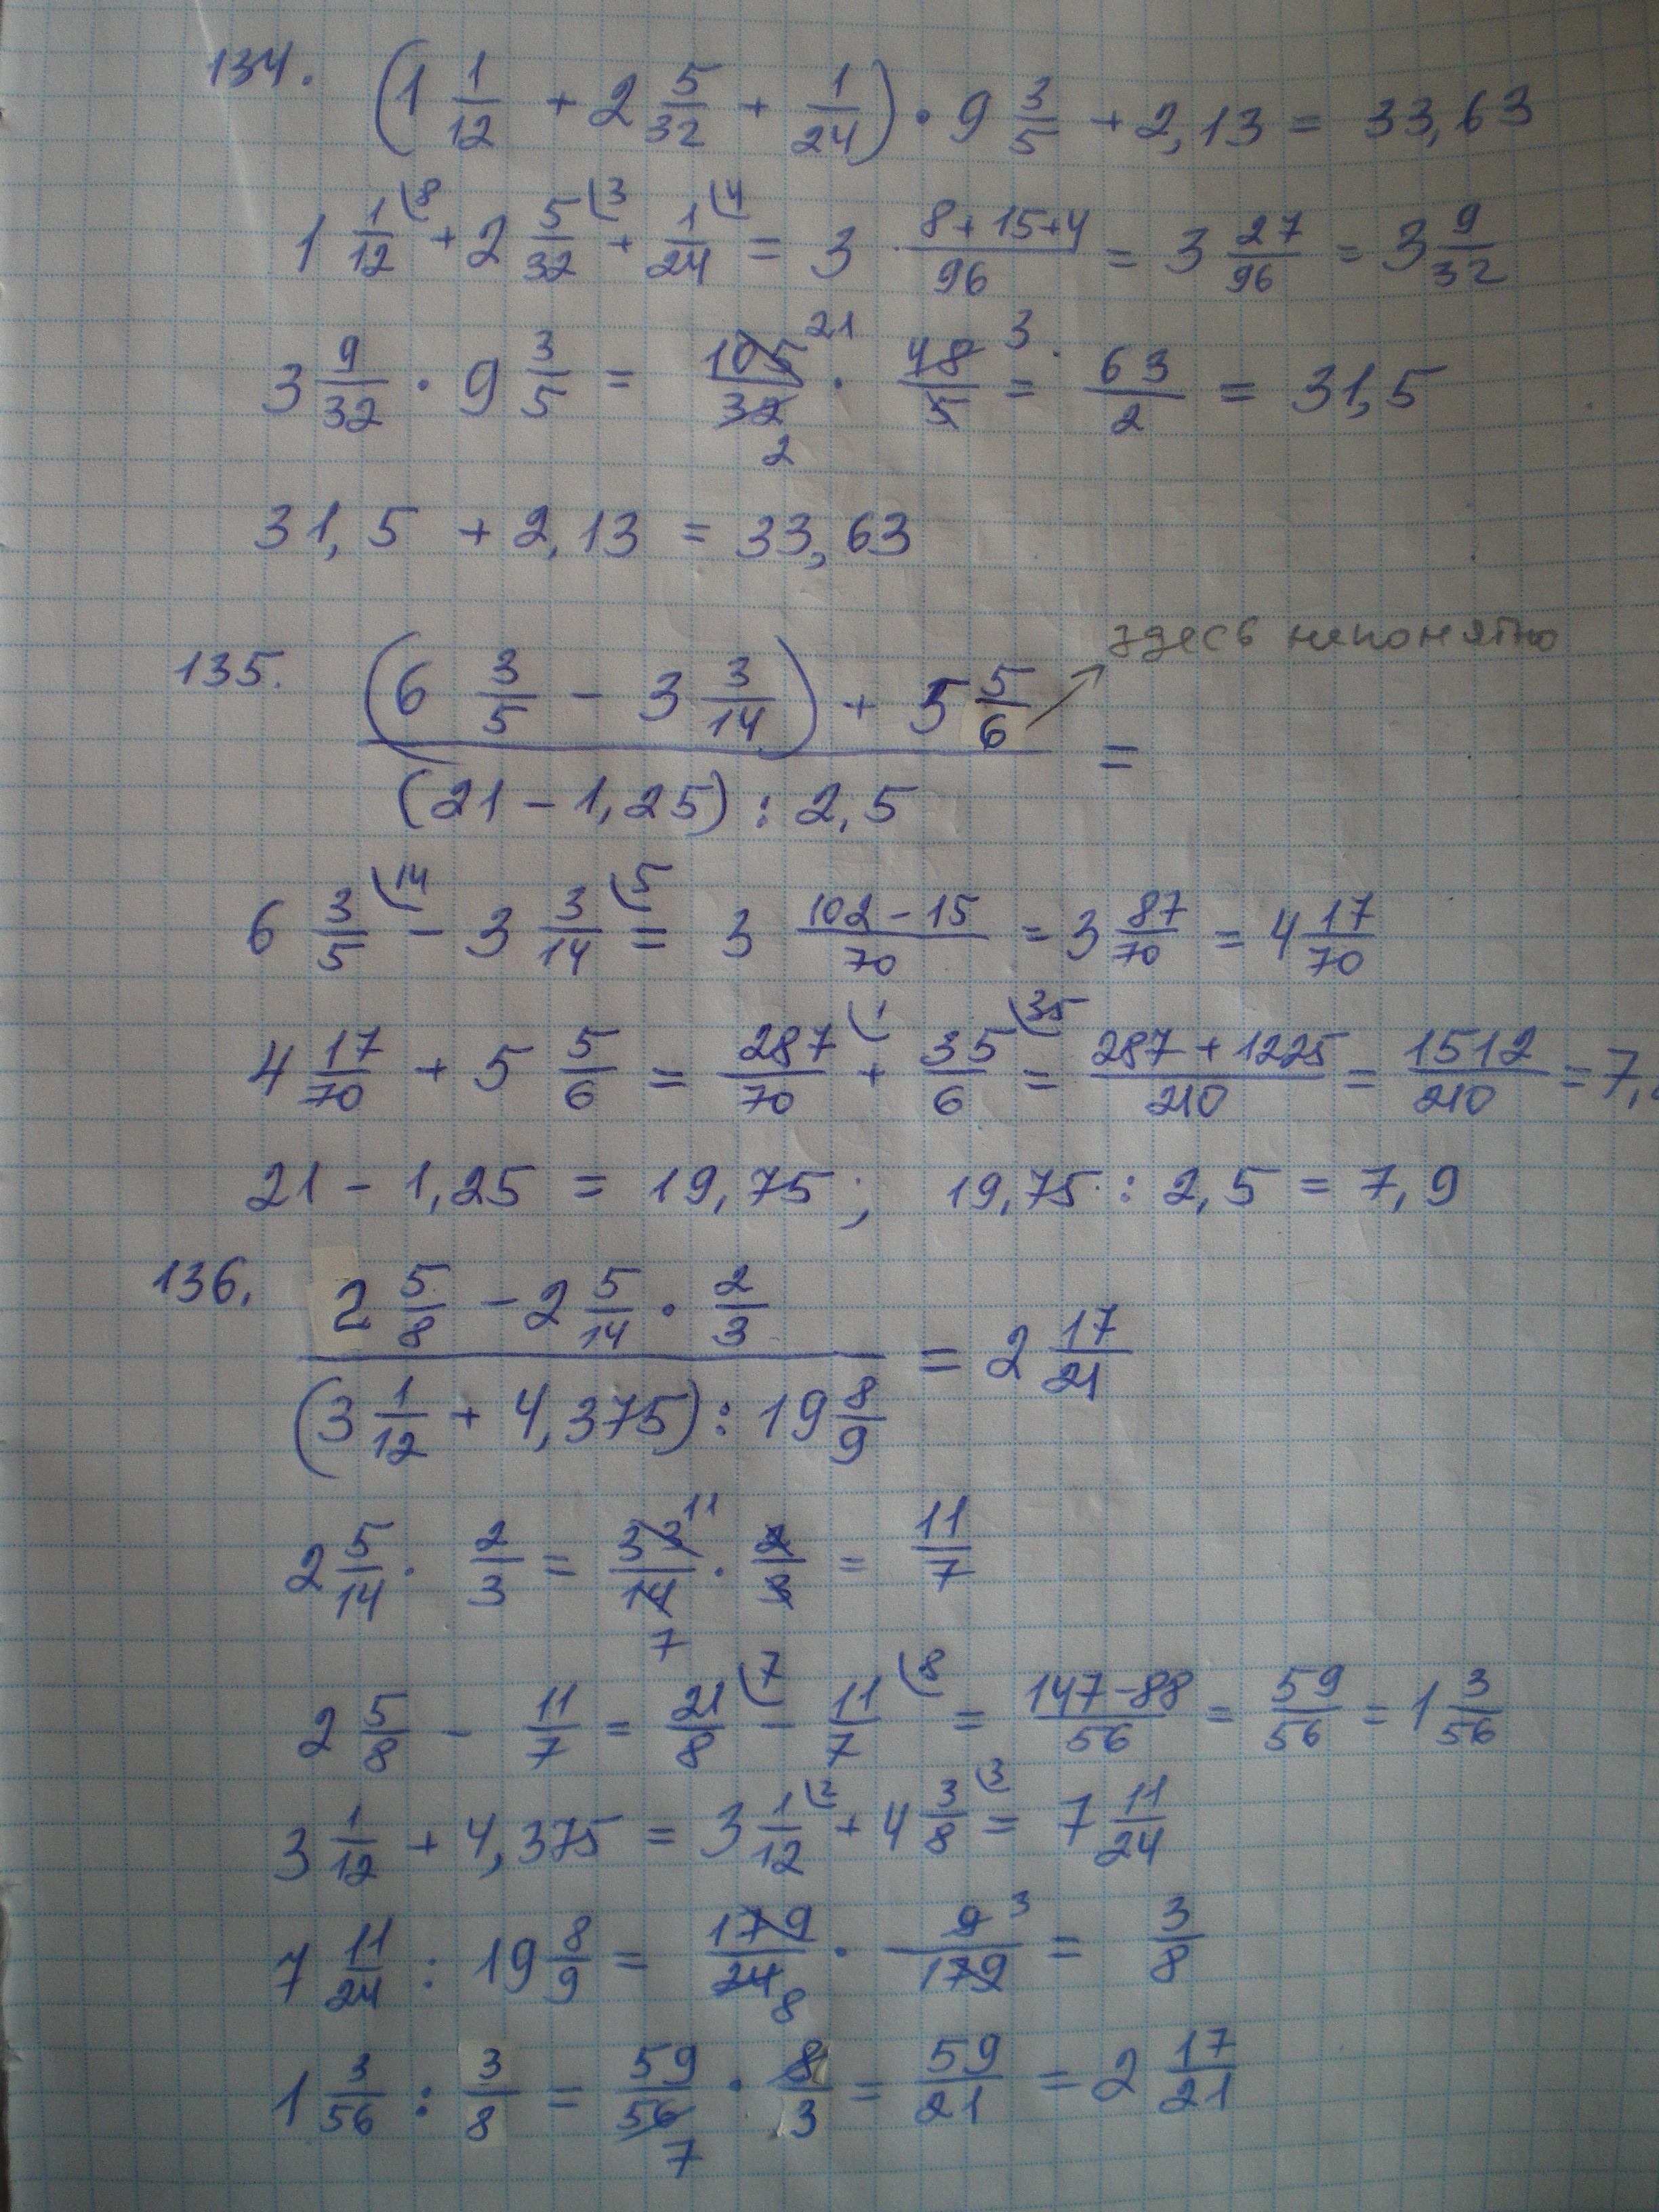 134. (1 1/12 + 2 5/32 + 1/24) · 9 3/5 + 2,13 = 33,63
1 1/12 (8 + 2 5/32 (3 + 1/24 (4 = 3 (8+15+4)/96 = 3 27/96 = 3 9/32
3 9/32 · 9 3/5 = 105/32 21 2 · 48/5 3 = 63/2 = 31,5
31,5 + 2,13 = 33,63
здесь непонятно
135. ((6 3/5 - 3 3/14) + 5 5/6) / ((21 - 1,25) : 2,5) =
6 3/5 (14 - 3 3/14 (5 = 3 (102-15)/70 = 3 87/70 = 4 17/70
4 17/70 + 5 5/6 = 287/70 (1 + 35/6 (35 = (287+1225)/210 = 1512/210 = 7,
21 - 1,25 = 19,75; 19,75 : 2,5 = 7,9
136. (2 5/8 - 2 5/14 · 2/3) / ((3 1/12 + 4,375) : 19 8/9) = 2 17/21
2 5/14 · 2/3 = 33/14 11 7 · 2/3 = 11/7
2 5/8 - 11/7 = 21/8 (7 - 11/7 (8 = (147-88)/56 = 59/56 = 1 3/56
3 1/12 + 4,375 = 3 1/12 (2 + 4 3/8 (3 = 7 11/24
7 11/24 : 19 8/9 = 179/24 8 · 9/179 3 = 3/8
1 3/56 : 3/8 = 59/56 7 · 8/3 = 59/21 = 2 17/21